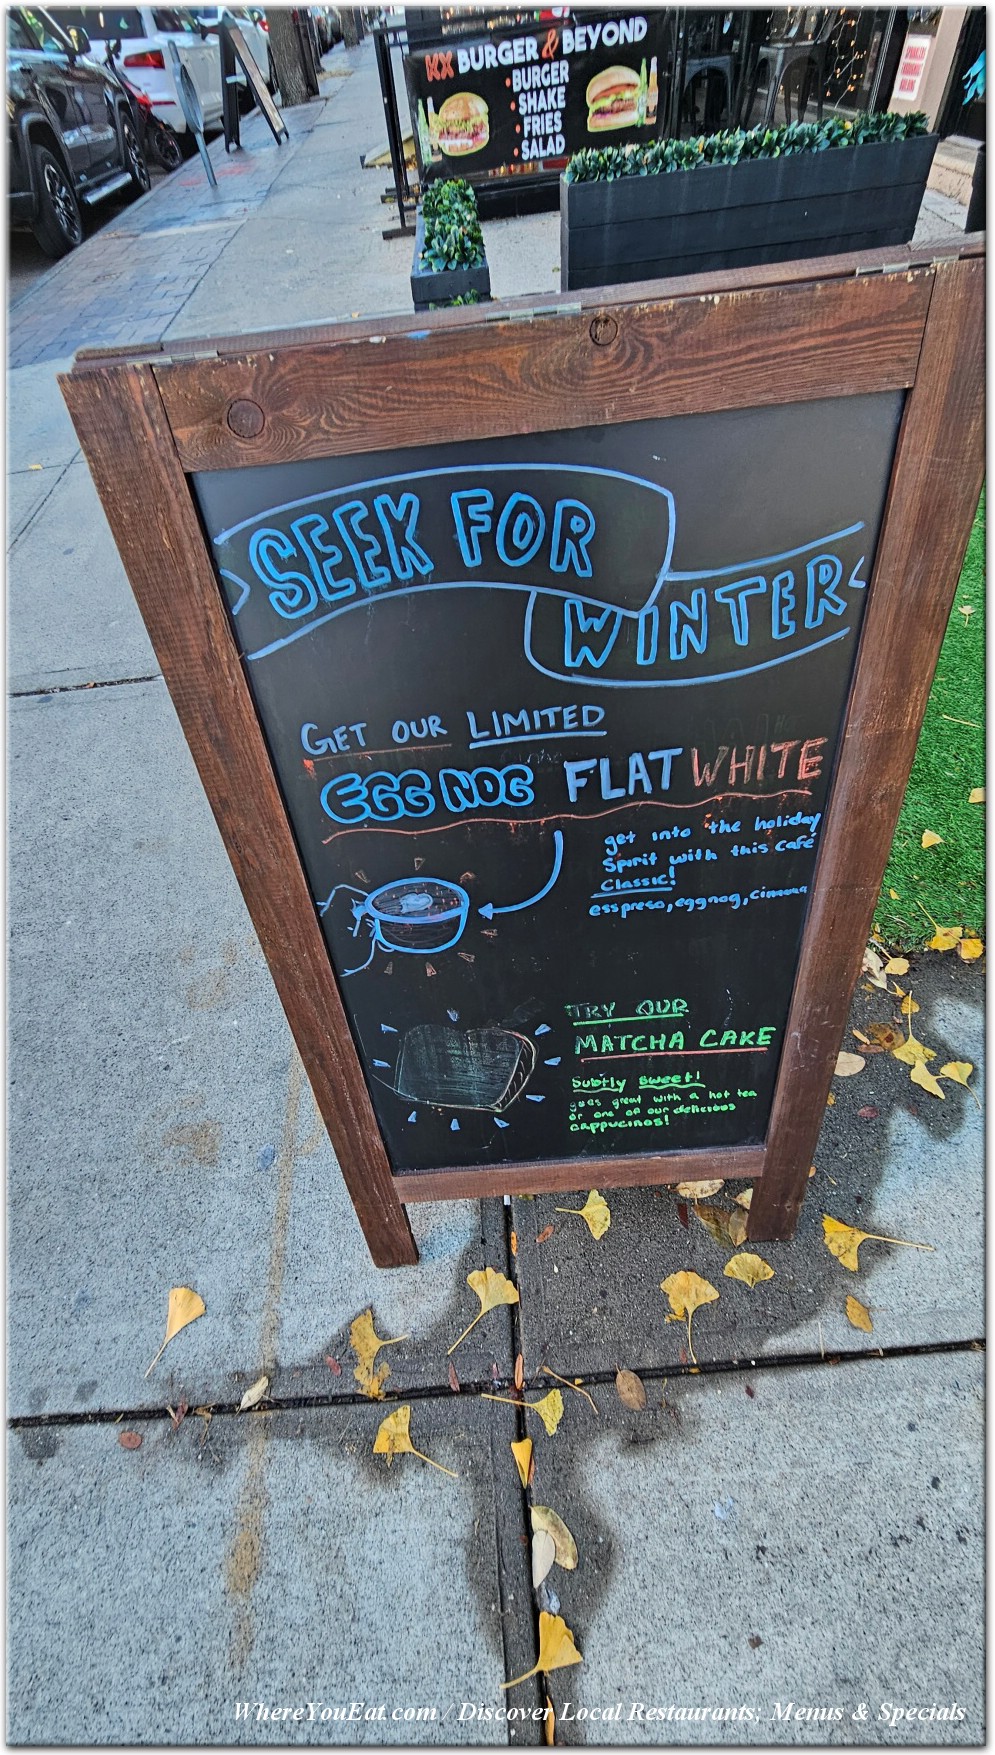 KX BURGER & BEYOND
• BURGER
• SHAKE
• FRIES
• SALAD
SEEK FOR
WINTER
GET OUR LIMITED
EGG NOG FLAT WHITE
get into the holiday
Spirit with this café
Classic!
esspreso, eggnog, cinnama
TRY OUR
MATCHA CAKE
Subtly sweet!
goes great with a hot tea
or one of our delicious
cappucinos!
WhereYouEat.com / Discover Local Restaurants; Menus & Specials